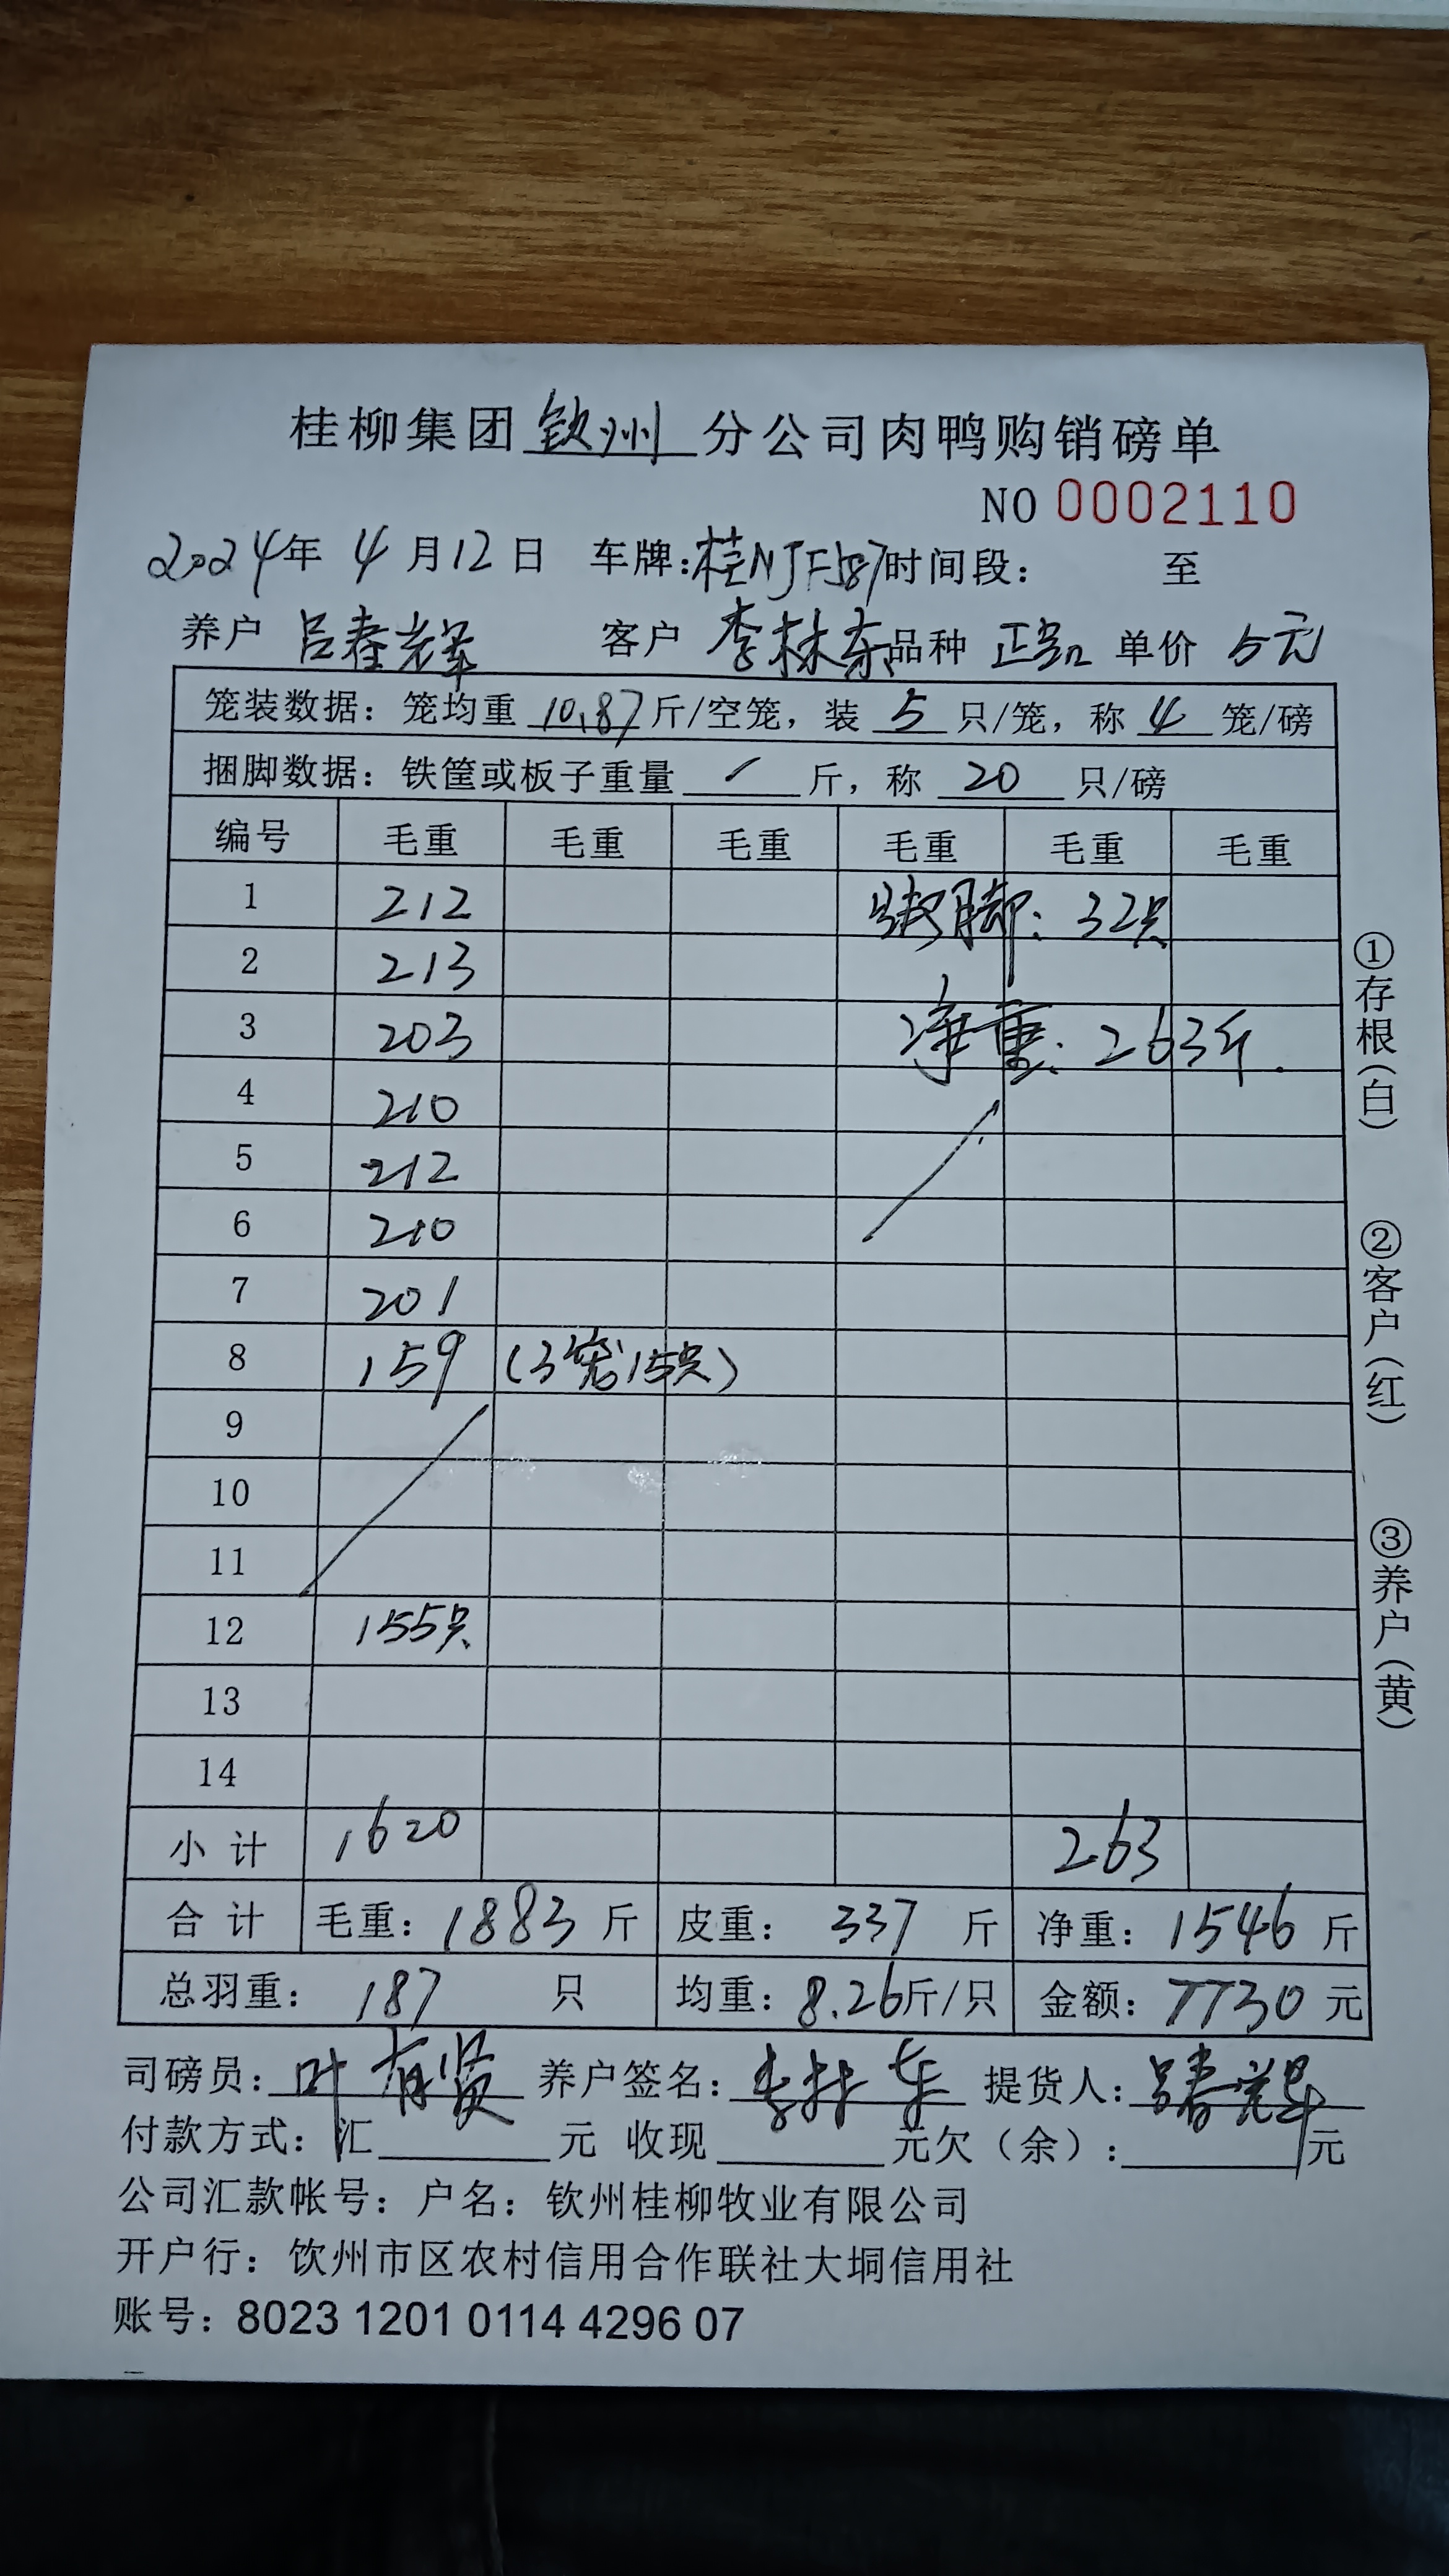 桂柳集团钦州分公司肉鸭购销磅单
NO 0002110
2024年 4月12日 车牌:桂NJF587时间段: 至
养户 吕春辉 客户 李林东 品种 正品 单价 5元
笼装数据: 笼均重 10.87 斤/空笼, 装 5 只/笼, 称 4 笼/磅
捆脚数据: 铁筐或板子重量 / 斤, 称 20 只/磅
编号 毛重 毛重 毛重 毛重 毛重 毛重
1 212 脚: 32只
2 213
3 203 净重: 263斤.
4 210
5 212
6 210
7 201
8 159 (3笼15只)
9
10
11
12 155只
13
14
小 计 1620 263
合 计 毛重: 1883 斤 皮重: 337 斤 净重: 1546 斤
总羽重: 187 只 均重: 8.26斤/只 金额: 7730 元
司磅员: 叶有贤 养户签名: 李林东 提货人: 吕春辉
付款方式: 汇 元 收现 元欠(余): 元
公司汇款帐号: 户名: 钦州桂柳牧业有限公司
开户行: 饮州市区农村信用合作联社大垌信用社
账号: 8023 1201 0114 4296 07
①存根(白)
②客户(红)
③养户(黄)